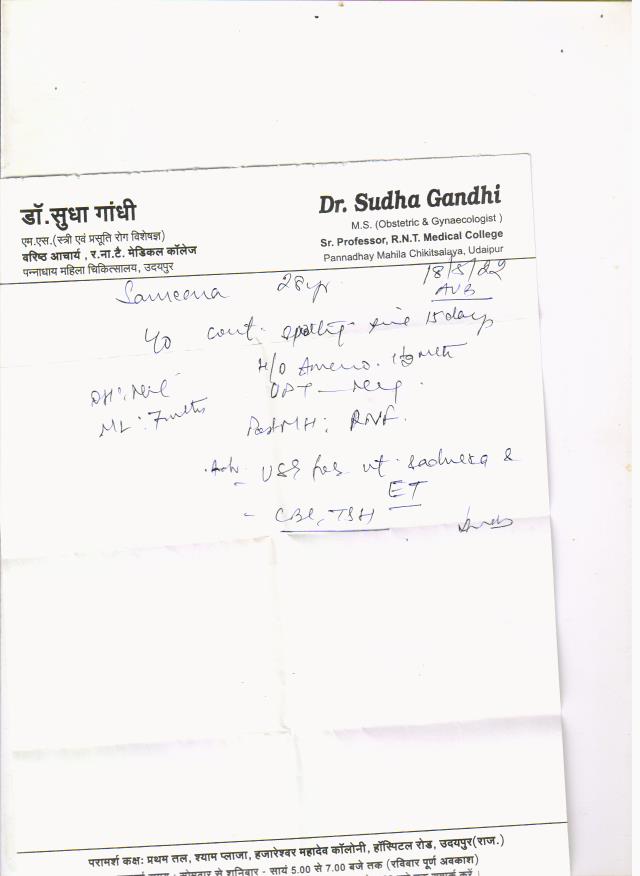 डॉ.सुधा गांधी
एम.एस.(स्त्री एवं प्रसूति रोग विशेषज्ञ)
वरिष्ठ आचार्य , र.ना.टै. मेडिकल कॉलेज
पन्नाधाय महिला चिकित्सालय, उदयपुर
Dr. Sudha Gandhi
M.S. (Obstetric & Gynaecologist )
Sr. Professor, R.N.T. Medical College
Pannadhay Mahila Chikitsalaya, Udaipur
Sameena 28 yr. 18/5/22
AUB
cont. spotting since 15 days
H/O Ameno.
UPT — Neg.
ML: 7 mths
Past MH: 
USG for ut. &
ET
- CBC, TSH
परामर्श कक्ष: प्रथम तल, श्याम प्लाजा, हजारेश्वर महादेव कॉलोनी, हॉस्पिटल रोड, उदयपुर(राज.)
समय : सोमवार से शनिवार - सायं 5.00 से 7.00 बजे तक (रविवार पूर्ण अवकाश)